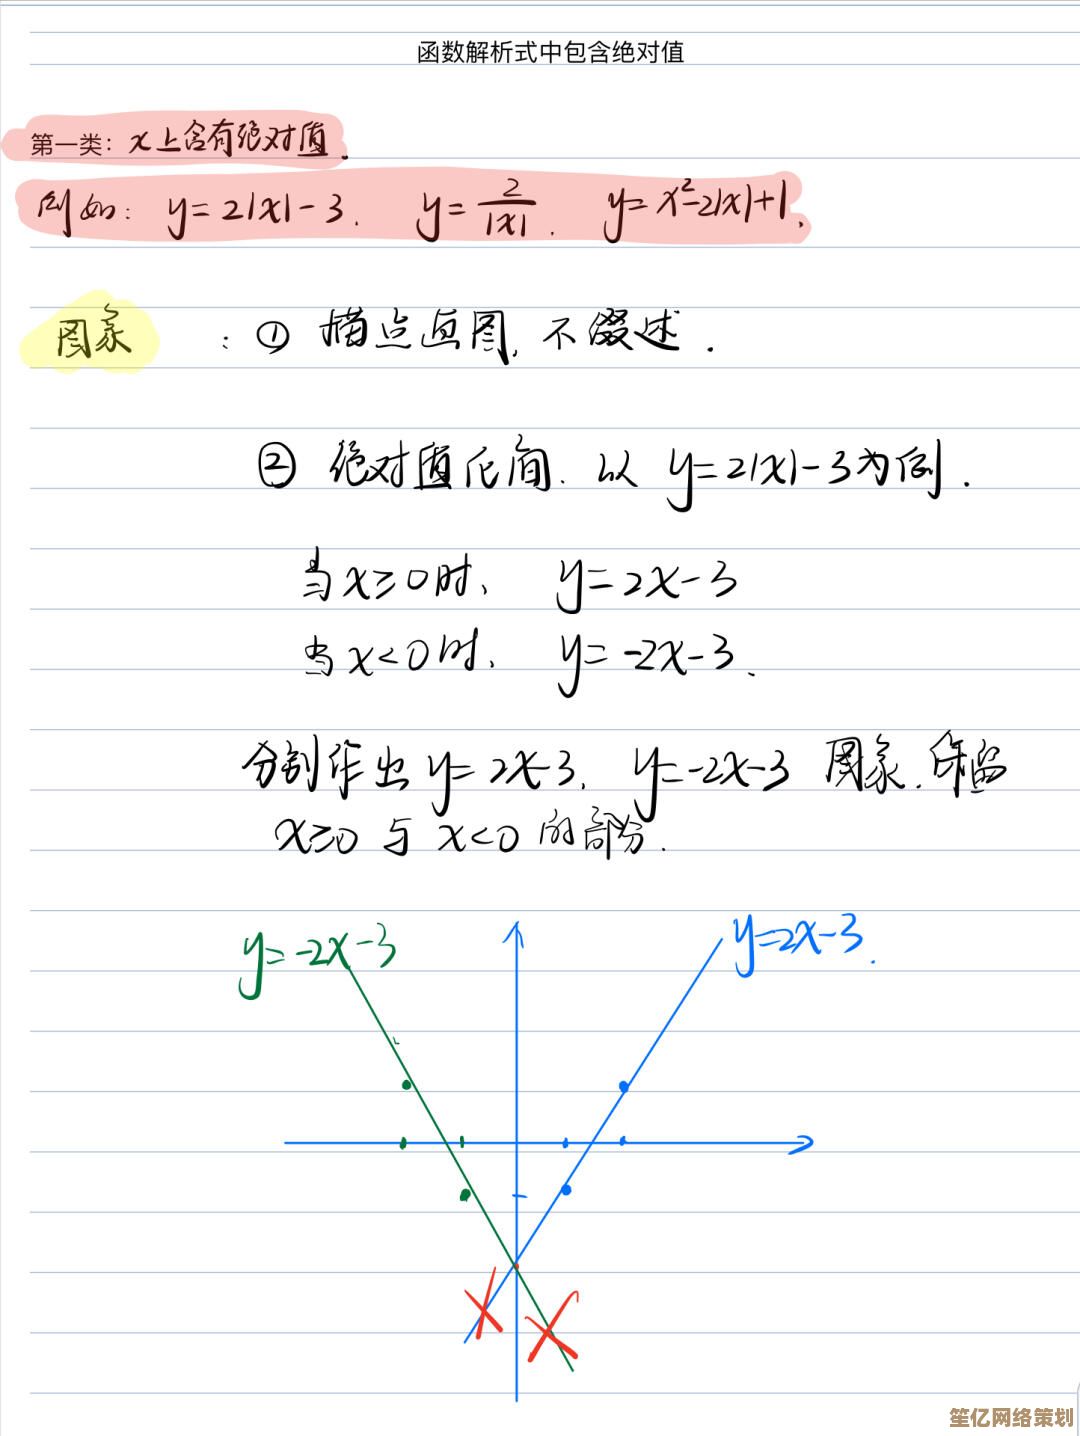 函数解析式中包含绝对值
第一类：x上含有绝对值.
例如：y=2|x|-3. y=2/|x|. y=x²-2|x|+1.
图象：① 描点画图,不缀述.
② 绝对值化简.以 y=2|x|-3为例.
当x≥0时、 y=2x-3
当x<0时、 y=-2x-3.
分别作出y=2x-3. y=-2x-3 图象.保留
x≥0 与 x<0 的部分.
y=-2x-3
y=2x-3.
笙亿网络策划